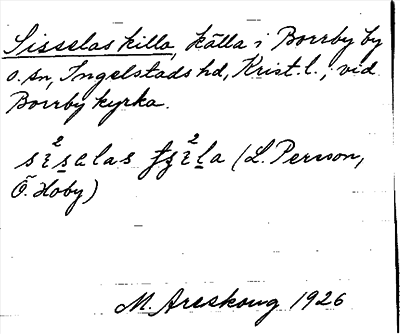 Sisselas killa, källa i Borrby by
o. sn, Ingelstads hd, Krist. l., vid
Borrby kyrka.
(L. Persson,
Ö. Hoby)
M. Areskoug 1926